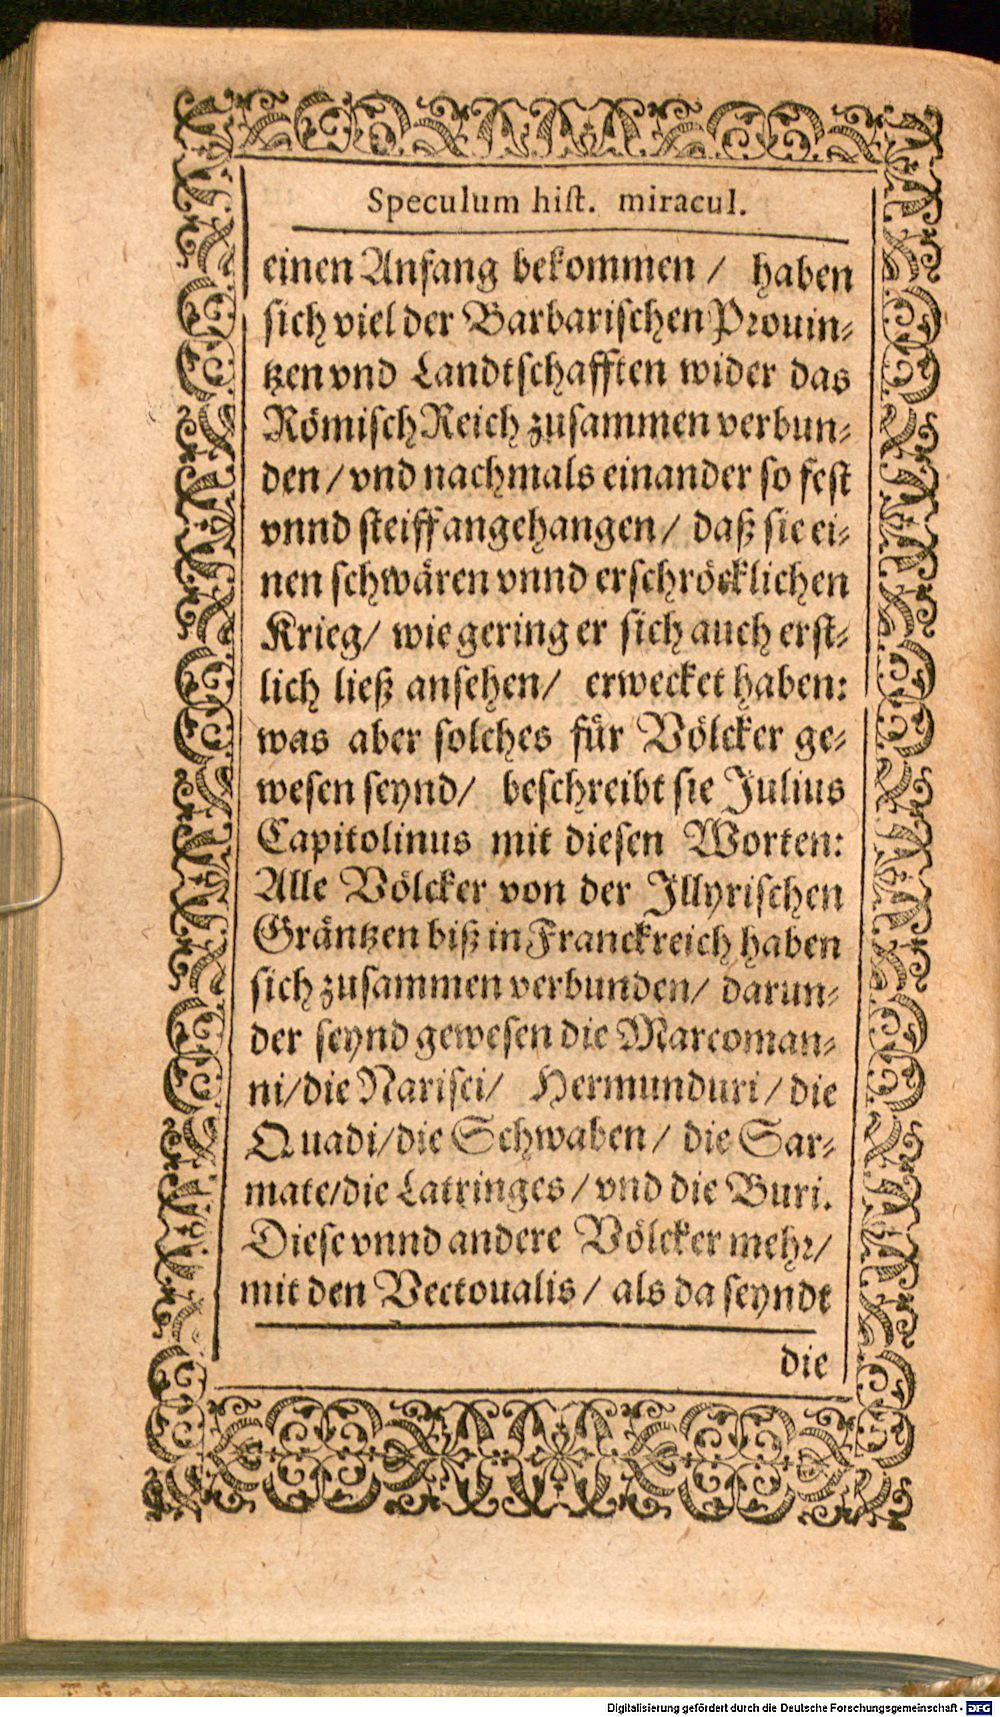 Speculum hiſt. miracul.
einen Anfang bekommen / haben
ſich viel der Barbariſchen Prouin⸗
tzen vnd Landtſchafften wider das
Römiſch Reich zuſammen verbun⸗
den / vnd nachmals einander ſo feſt
vnnd ſteiff angehangen / daß ſie ei⸗
nen ſchwären vnnd erſchröcklichen
Krieg / wie gering er ſich auch erſt⸗
lich ließ anſehen / erwecket haben:
was aber ſolches für Völcker ge⸗
weſen ſeynd / beſchreibt ſie Julius
Capitolinus mit dieſen Worten:
Alle Völcker von der Illyriſchen
Gräntzen biß in Franckreich haben
ſich zuſammen verbunden / darun⸗
der ſeynd geweſen die Marcoman⸗
ni / die Nariſci / Hermunduri / die
Quadi / die Schwaben / die Sar⸗
mate / die Latringes / vnd die Buri.
Dieſe vnnd andere Völcker mehr /
mit den Vectoualis / als da ſeyndt
die
Digitalisierung gefördert durch die Deutsche Forschungsgemeinschaft - DFG